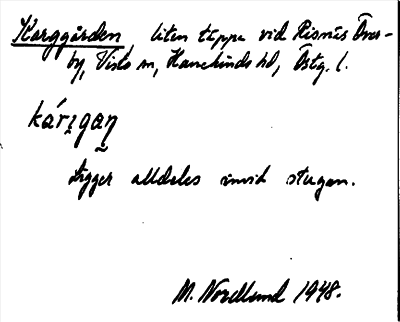 Karggården, liten täppa vid Risnäs Över-
by, Vists sn, Hanekinds hd, Östg. l.
kárıgaŋ
Ligger alldeles invid stugan.
M. Nordlund 1948.